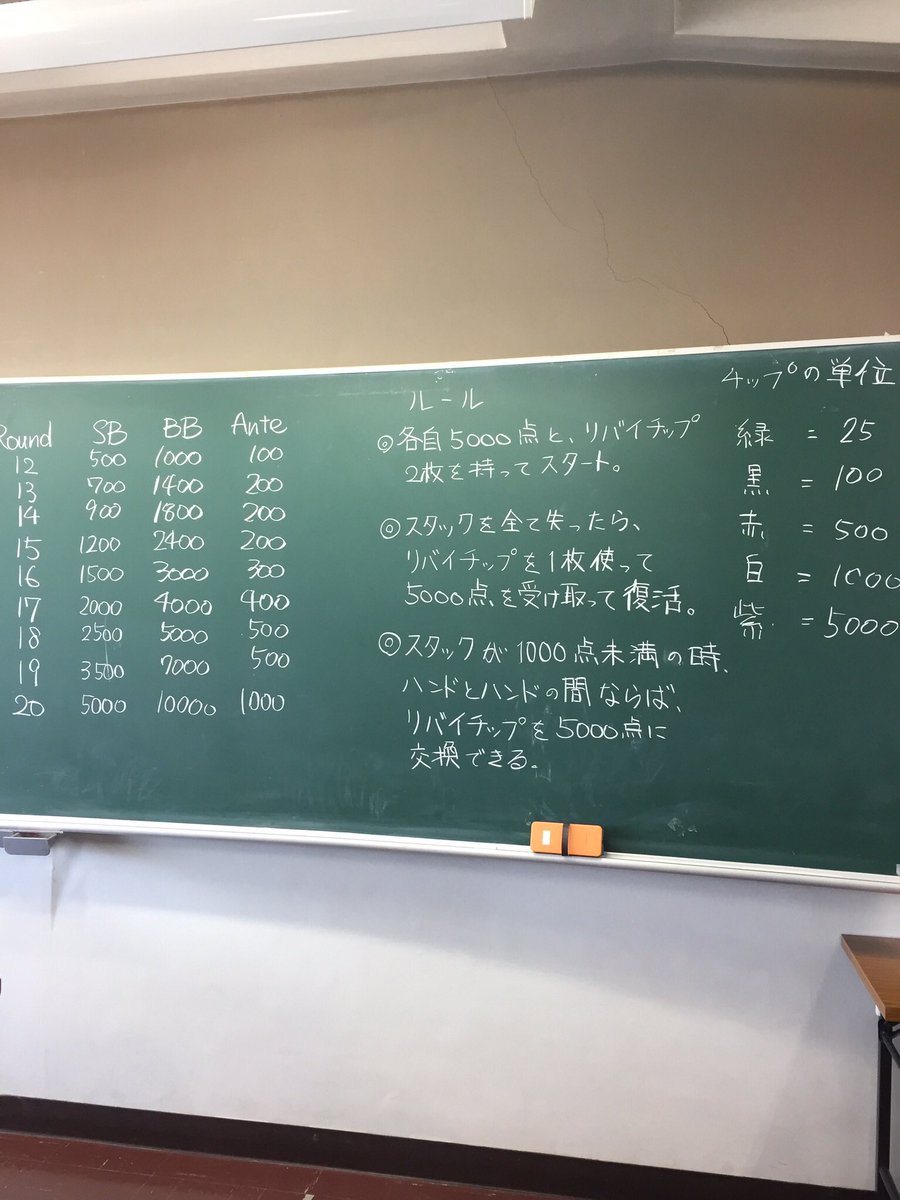 Round SB BB Ante
12 500 1000 100
13 700 1400 200
14 900 1800 200
15 1200 2400 200
16 1500 3000 300
17 2000 4000 400
18 2500 5000 500
19 3500 7000 500
20 5000 10000 1000
ルール
◎各自5000点と、リバイチップ
2枚を持ってスタート。
◎スタックを全て失ったら、
リバイチップを1枚使って
5000点を受け取って復活。
◎スタックが1000点未満の時、
ハンドとハンドの間ならば、
リバイチップを5000点に
交換できる。
チップの単位
緑 = 25
黒 = 100
赤 = 500
白 = 1000
紫 = 5000